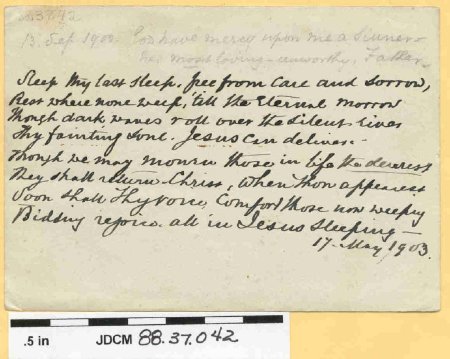 13. Sep 1903. God have mercy upon me a Sinner -
most loving - unworthy, Father.
Sleep thy last sleep, free from Care and Sorrow,
Rest where none weep, 'till the Eternal morrow
Though dark waves roll over the Silent River
Thy fainting Soul, Jesus can deliver. -
Though we may mourn those in life the dearest
They shall return, Christ, when Thou appearest
Soon shall Thy voice, Comfort those now weeping
Bidding rejoice, all in Jesus Sleeping -
17. May 1903.
.5 in JDCM 88.37.042